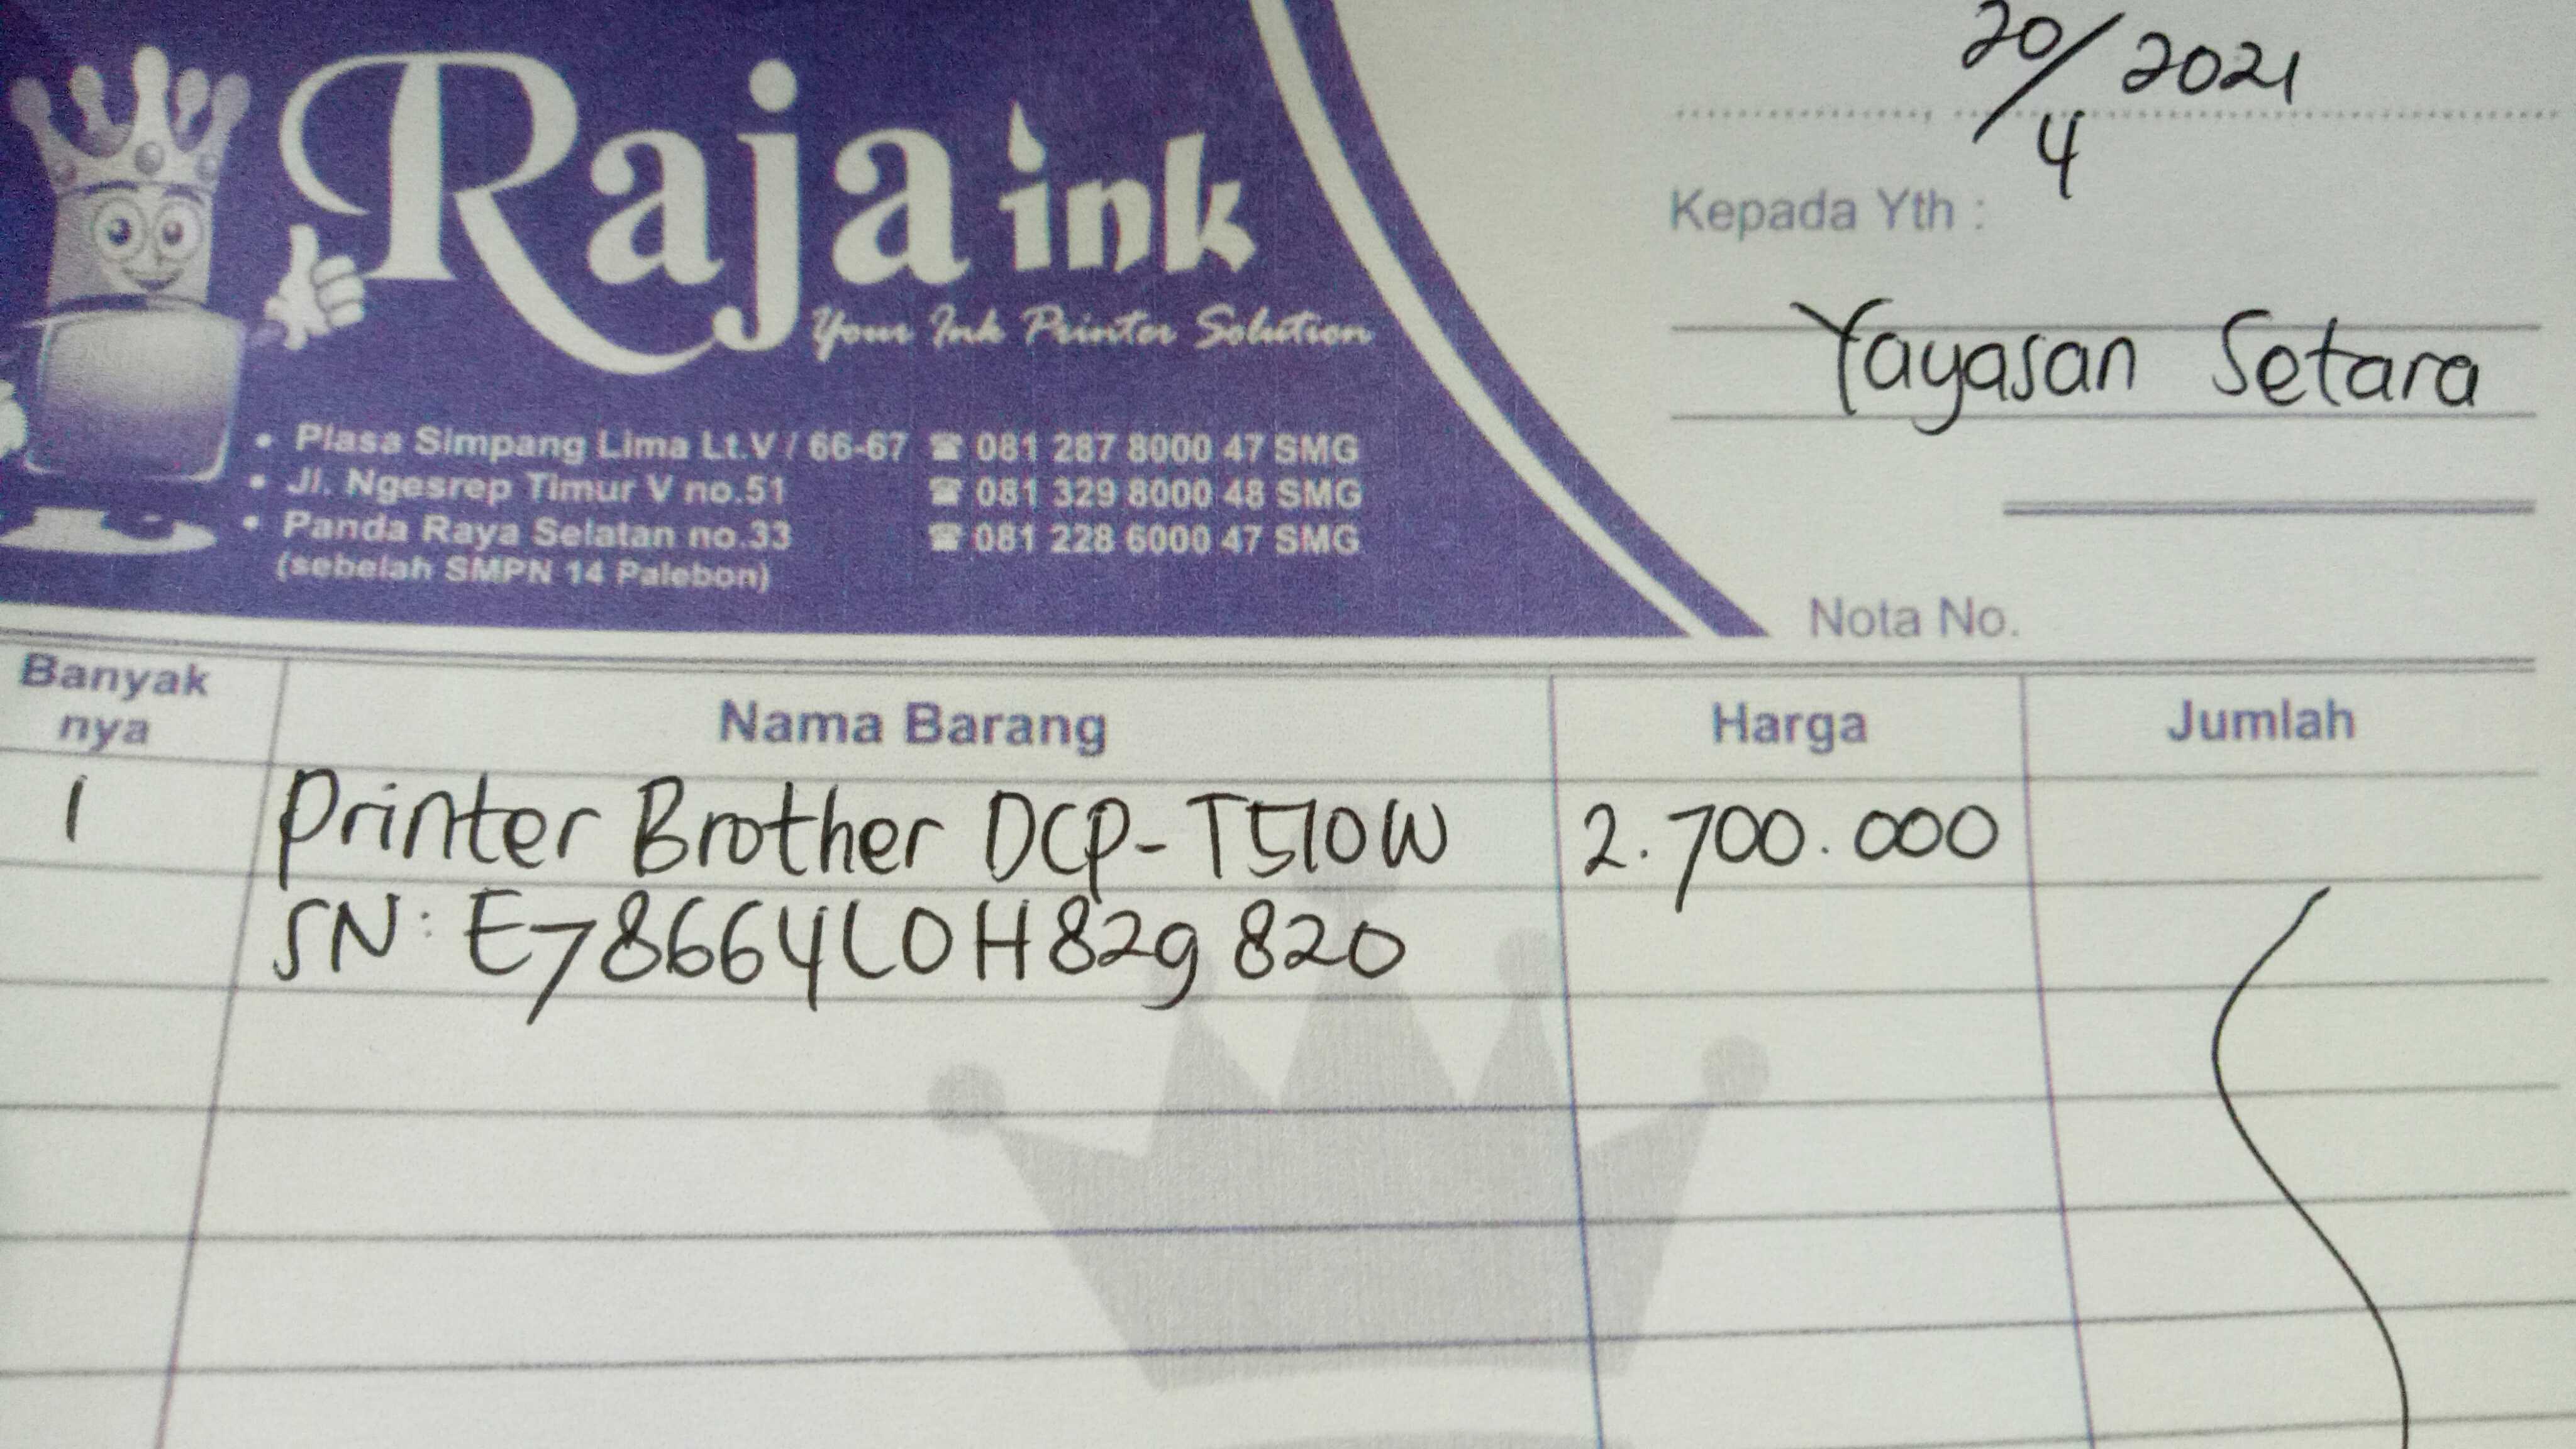 Raja ink
Your Ink Printer Solution
• Plasa Simpang Lima Lt.V / 66-67 ☎ 081 287 8000 47 SMG
• Jl. Ngesrep Timur V no.51 ☎ 081 329 8000 48 SMG
• Panda Raya Selatan no.33 ☎ 081 228 6000 47 SMG
(sebelah SMPN 14 Palebon)
20/4 2021
Kepada Yth :
Yayasan Setara
Nota No.
Banyak nya Nama Barang Harga Jumlah
1 Printer Brother DCP-T510W 2.700.000
SN: E78664L0H829820